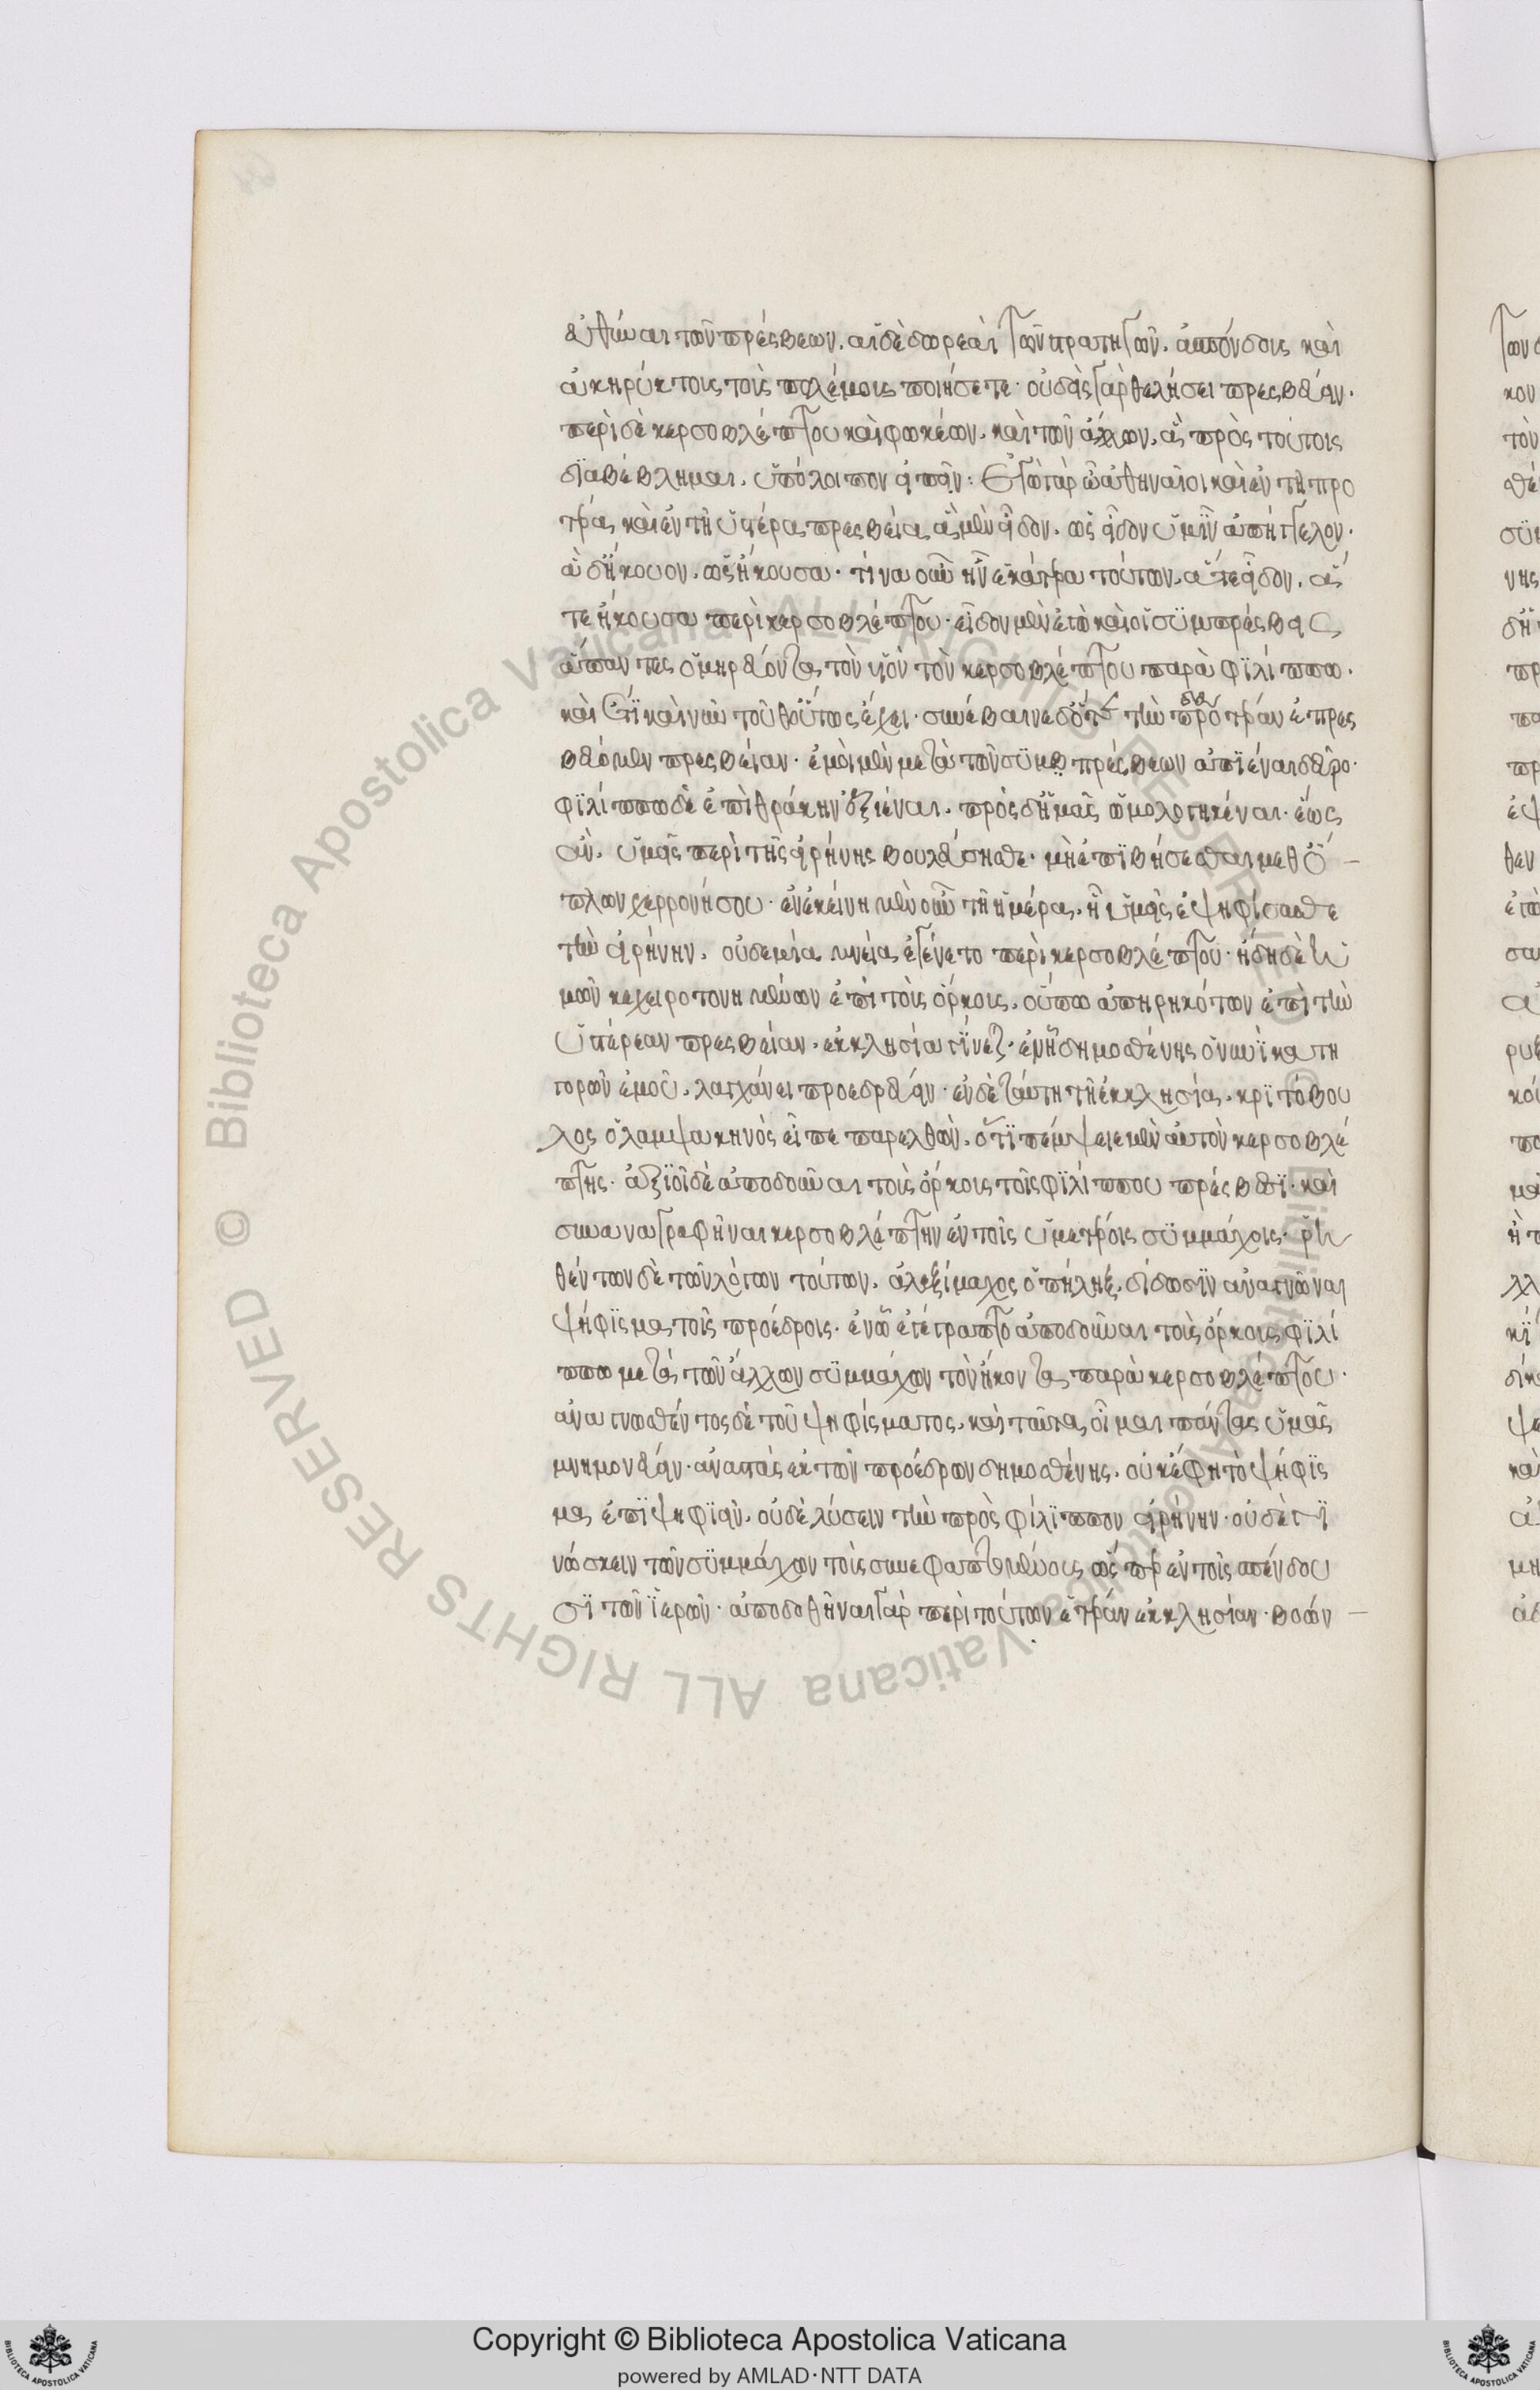 εὐθῦναι τῶν πρέσβεων. αἱ δὲ δωρεαὶ τῶν στρατηγῶν. ἀσπόνδοις καὶ
ἀκηρύκτοις τοῖς πολέμοις ποιήσετε· οὐδεὶς γὰρ θελήσει πρεσβεύειν·
περὶ δὲ κερσοβλέπτου καὶ φωκέων. καὶ τῶν ἄλλων. ἃ πρὸς τούτοις
διαβέβλημαι. ὑπόλοιπον εἰπεῖν: Ἐγὼ γὰρ ὦ ἀθηναῖοι καὶ ἐν τῇ προ
τέρᾳ καὶ ἐν τῇ ὑστέρᾳ πρεσβείᾳ ἃ μὲν εἶδον. ὡς εἶδον ὑμῖν ἀπήγγελον·
ἃ δ' ἤκουον. ὡς ἤκουσα· τίνα οὖν ἦν ἑκάτερα τούτων. ἅ τε εἶδον. ἅ
τε ἤκουσα περὶ κερσοβλέπτου· εἶδον μὲν ἐγὼ καὶ οἱ συμπρέσβεις
ἅπαντες ὁμηρεύοντα τὸν υἱὸν τὸν κερσοβλέπτου παρὰ φιλίππῳ·
καὶ ἔτι καὶ νῦν τοῦθ' οὕτως ἔχει· συνέβαινε δ' ὅτε τὴν προτέραν ἐπρες
βεύομεν πρεσβείαν· ἐμοὶ μὲν μετὰ τῶν συμβ πρέσβεων ἀπιέναι δεῦρο·
φιλίππῳ δὲ ἐπὶ θράκην ἐξιέναι. πρὸς δ' ἡμᾶς ὡμολογηκέναι· ἕως
ἂν. ὑμεῖς περὶ τῆς εἰρήνης βουλεύσησθε· μὴ ἐπιβήσεσθαι μεθ' ὅ
πλων χερρονήσου· ἐν ἐκείνῃ μὲν οὖν τῇ ἡμέρᾳ. ᾗ ὑμεῖς ἐψηφίσασθε
τὴν εἰρήνην. οὐδεμία μνεία ἐγένετο περὶ κερσοβλέπτου· ἤδη δὲ ἡ
μῶν κεχειροτονημένων ἐπὶ τοὺς ὅρκους. οὔπω ἀπηρκότων ἐπὶ τὴν
ὑστέραν πρεσβείαν. ἐκκλησία γίνεται· ἐν ᾗ δημοσθένης ὁ νυνὶ κατη
γορῶν ἐμοῦ. λαγχάνει προεδρεύειν· ἐν δὲ ταύτῃ τῇ ἐκκλησίᾳ. κριτόβου
λος ὁ λαμψακηνὸς εἶπε παρελθὼν. ὅτι πέμψειε μὲν αὐτὸν κερσοβλέ
πτης· ἀξιοῖ δὲ ἀποδοῦναι τοὺς ὅρκους τοῖς φιλίππου πρέσβεσι· καὶ
συναναγραφῆναι κερσοβλέπτην ἐν τοῖς ὑμετέροις συμμάχοις· ῥη
θέντων δὲ τῶν λόγων τούτων. ἀλεξίμαχος ὁ πήληξ. δίδωσιν ἀναγνῶναι
ψήφισμα τοῖς προέδροις· ἐν ᾧ ἐγέγραπτο ἀποδοῦναι τοὺς ὅρκους φιλί
ππῳ μετὰ τῶν ἄλλων συμμάχων τὸν ἥκοντα παρὰ κερσοβλέπτου·
ἀναγνωσθέντος δὲ τοῦ ψηφίσματος. καὶ ταῦτα οἶμαι πάντας ὑμᾶς
μνημονεύειν· ἀναστὰς ἐκ τῶν προέδρων δημοσθένης. οὐκ ἔφη τὸ ψήφισ
μα ἐπιψηφιεῖν. οὐδὲ λύσειν τὴν πρὸς φίλιππον εἰρήνην· οὐδὲ γι
νώσκειν τῶν συμμάχων τοὺς συνεφαπτομένους ὥσπερ ἐν τοῖς σπένδου
σι τῶν ἱερῶν· ἀποδοθῆναι γὰρ περὶ τούτων ἑτέραν ἐκκλησίαν· βοών
Copyright © Biblioteca Apostolica Vaticana
powered by AMLAD·NTT DATA